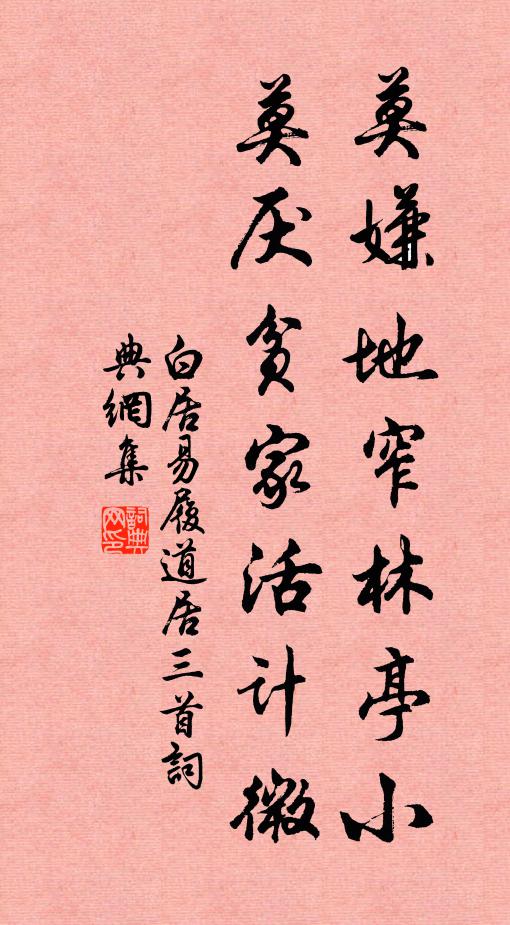 莫嫌地窄林亭小
莫厌贫家活计微
白居易履道居三首詞
典網集
詞典网印